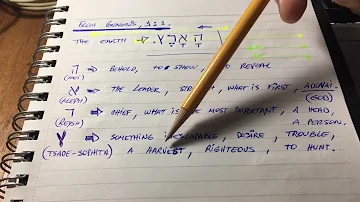 FROM GENESIS, 1:1.
THE EARTH ⇒ הָאָרֶץ.
ה ⇒ BEHOLD, TO SHEW, TO REVEAL
(HEI)
א ⇒ THE LEADER, STRENGTH, WHAT IS FIRST, ADONAI.
(ALEPH) (GOD)
ר ⇒ CHIEF, WHAT IS MOST IMPORTANT, A HEAD,
(RESH) A PERSON.
ץ ⇒ SOMETHING INESCAPABLE, DESIRE, TROUBLE,
(TSADE-SOPHITA) A HARVEST, RIGHTEOUS, TO HUNT.